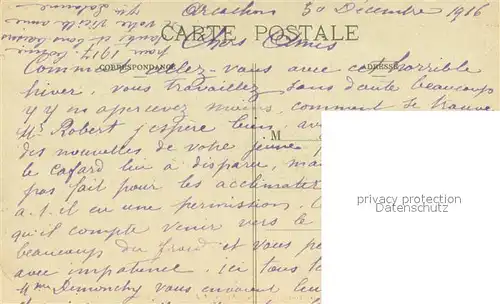 Arcachon 30 Décembre 1916
CARTE POSTALE
Chers Amis
CORRESPONDANCE
ADRESSE
Comment allez-vous avec cet horrible
hiver, vous travaillez sans doute beaucoup
y y m apercevez moins, comment se trouve
Mr Robert j espère bien, av
des nouvelles de votre jeune
M
le cafard lui à disparu, ma
pas fait pour les acclimater
a.t.il eu une permission.
qu'il compte venir vers le
beaucoup du froid et vous
avec impatience, ici tous
Mme Demonchy vous envoient
privacy protection
Datenschutz
pour 1917